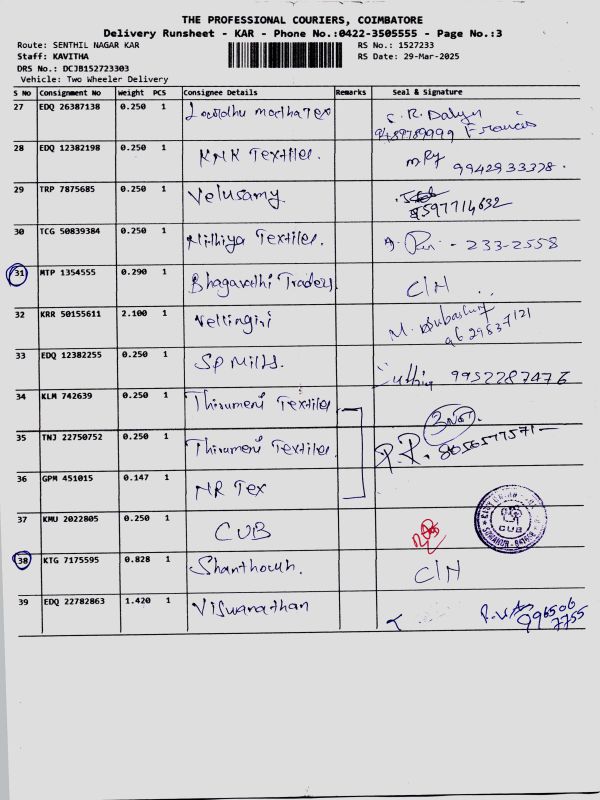 THE PROFESSIONAL COURIERS, COIMBATORE
Delivery Runsheet - KAR - Phone No.:0422-3505555 - Page No.:3
Route: SENTHIL NAGAR KAR RS No.: 1527233
Staff: KAVITHA RS Date: 29-Mar-2025
DRS No.: DCJB152723303
Vehicle: Two Wheeler Delivery
S No Consignment No Weight PCS Consignee Details Remarks Seal & Signature
27 EDQ 26387138 0.250 1 Lourdhu madha Tex S. R.
Francis
28 EDQ 12382198 0.250 1 KNK Textiles. 9942933378.
29 TRP 7875685 0.250 1 Velusamy 9597714632
30 TCG 50839384 0.250 1 Nithiya Textiles. - 233-2558
31 MTP 1354555 0.290 1 Bhagavathi Traders C/N
32 KRR 50155611 2.100 1 Vellingiri M.
9629837121
33 EDQ 12382255 0.250 1 SP Mills. 9952287476
34 KLM 742639 0.250 1 Thirumeni Textiles
35 TNJ 22750752 0.250 1 Thirumeni Textiles. P.P. 8056577571
36 GPM 451015 0.147 1 MR Tex
37 KMU 2022805 0.250 1 CUB CUB
38 KTG 7175595 0.828 1 C/N
39 EDQ 22782863 1.420 1 Viswanathan 996506
7755